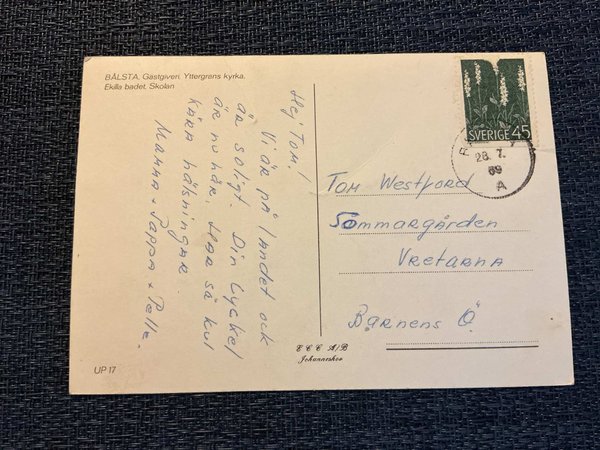 BÅLSTA. Gästgiveri, Yttergrans kyrka.
Ekilla badet. Skolan
Hej Tom!
Vi är på landet och
är soligt. Din cyckel
är nu här. Har så kul
Kära hälsningar
Mamma + Pappa + Pelle.
SVERIGE 45
28. 7.
69
A
Tom Westford
Sommargården
Vretarna
Barnens Ö
E C C A/B
Johanneshov
UP 17